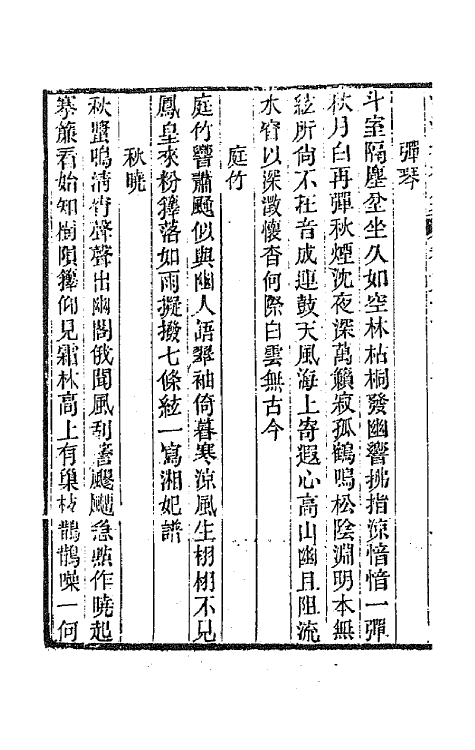 彈琴
斗室隔塵坌坐久如空林枯桐發幽響拂指涼愔愔一彈
秋月白再彈秋煙沈夜深萬籟寂孤鶴鳴松陰淵明本無
絃所尙不在音成連鼓天風海上寄遐心高山幽且阻流
水窅以深澂懷杳何際白雲無古今
庭竹
庭竹響蕭颸似與幽人語翠袖倚暮寒涼風生栩栩不見
鳳皇來粉籜落如雨擬撥七條絃一寫湘妃譜
秋曉
秋蛩鳴淸宵聲聲出幽閣俄聞風刮簷颼颼急點作曉起
搴簾看始知樹隕籜仰見霜林高上有巢枝鵲鵲噪一何